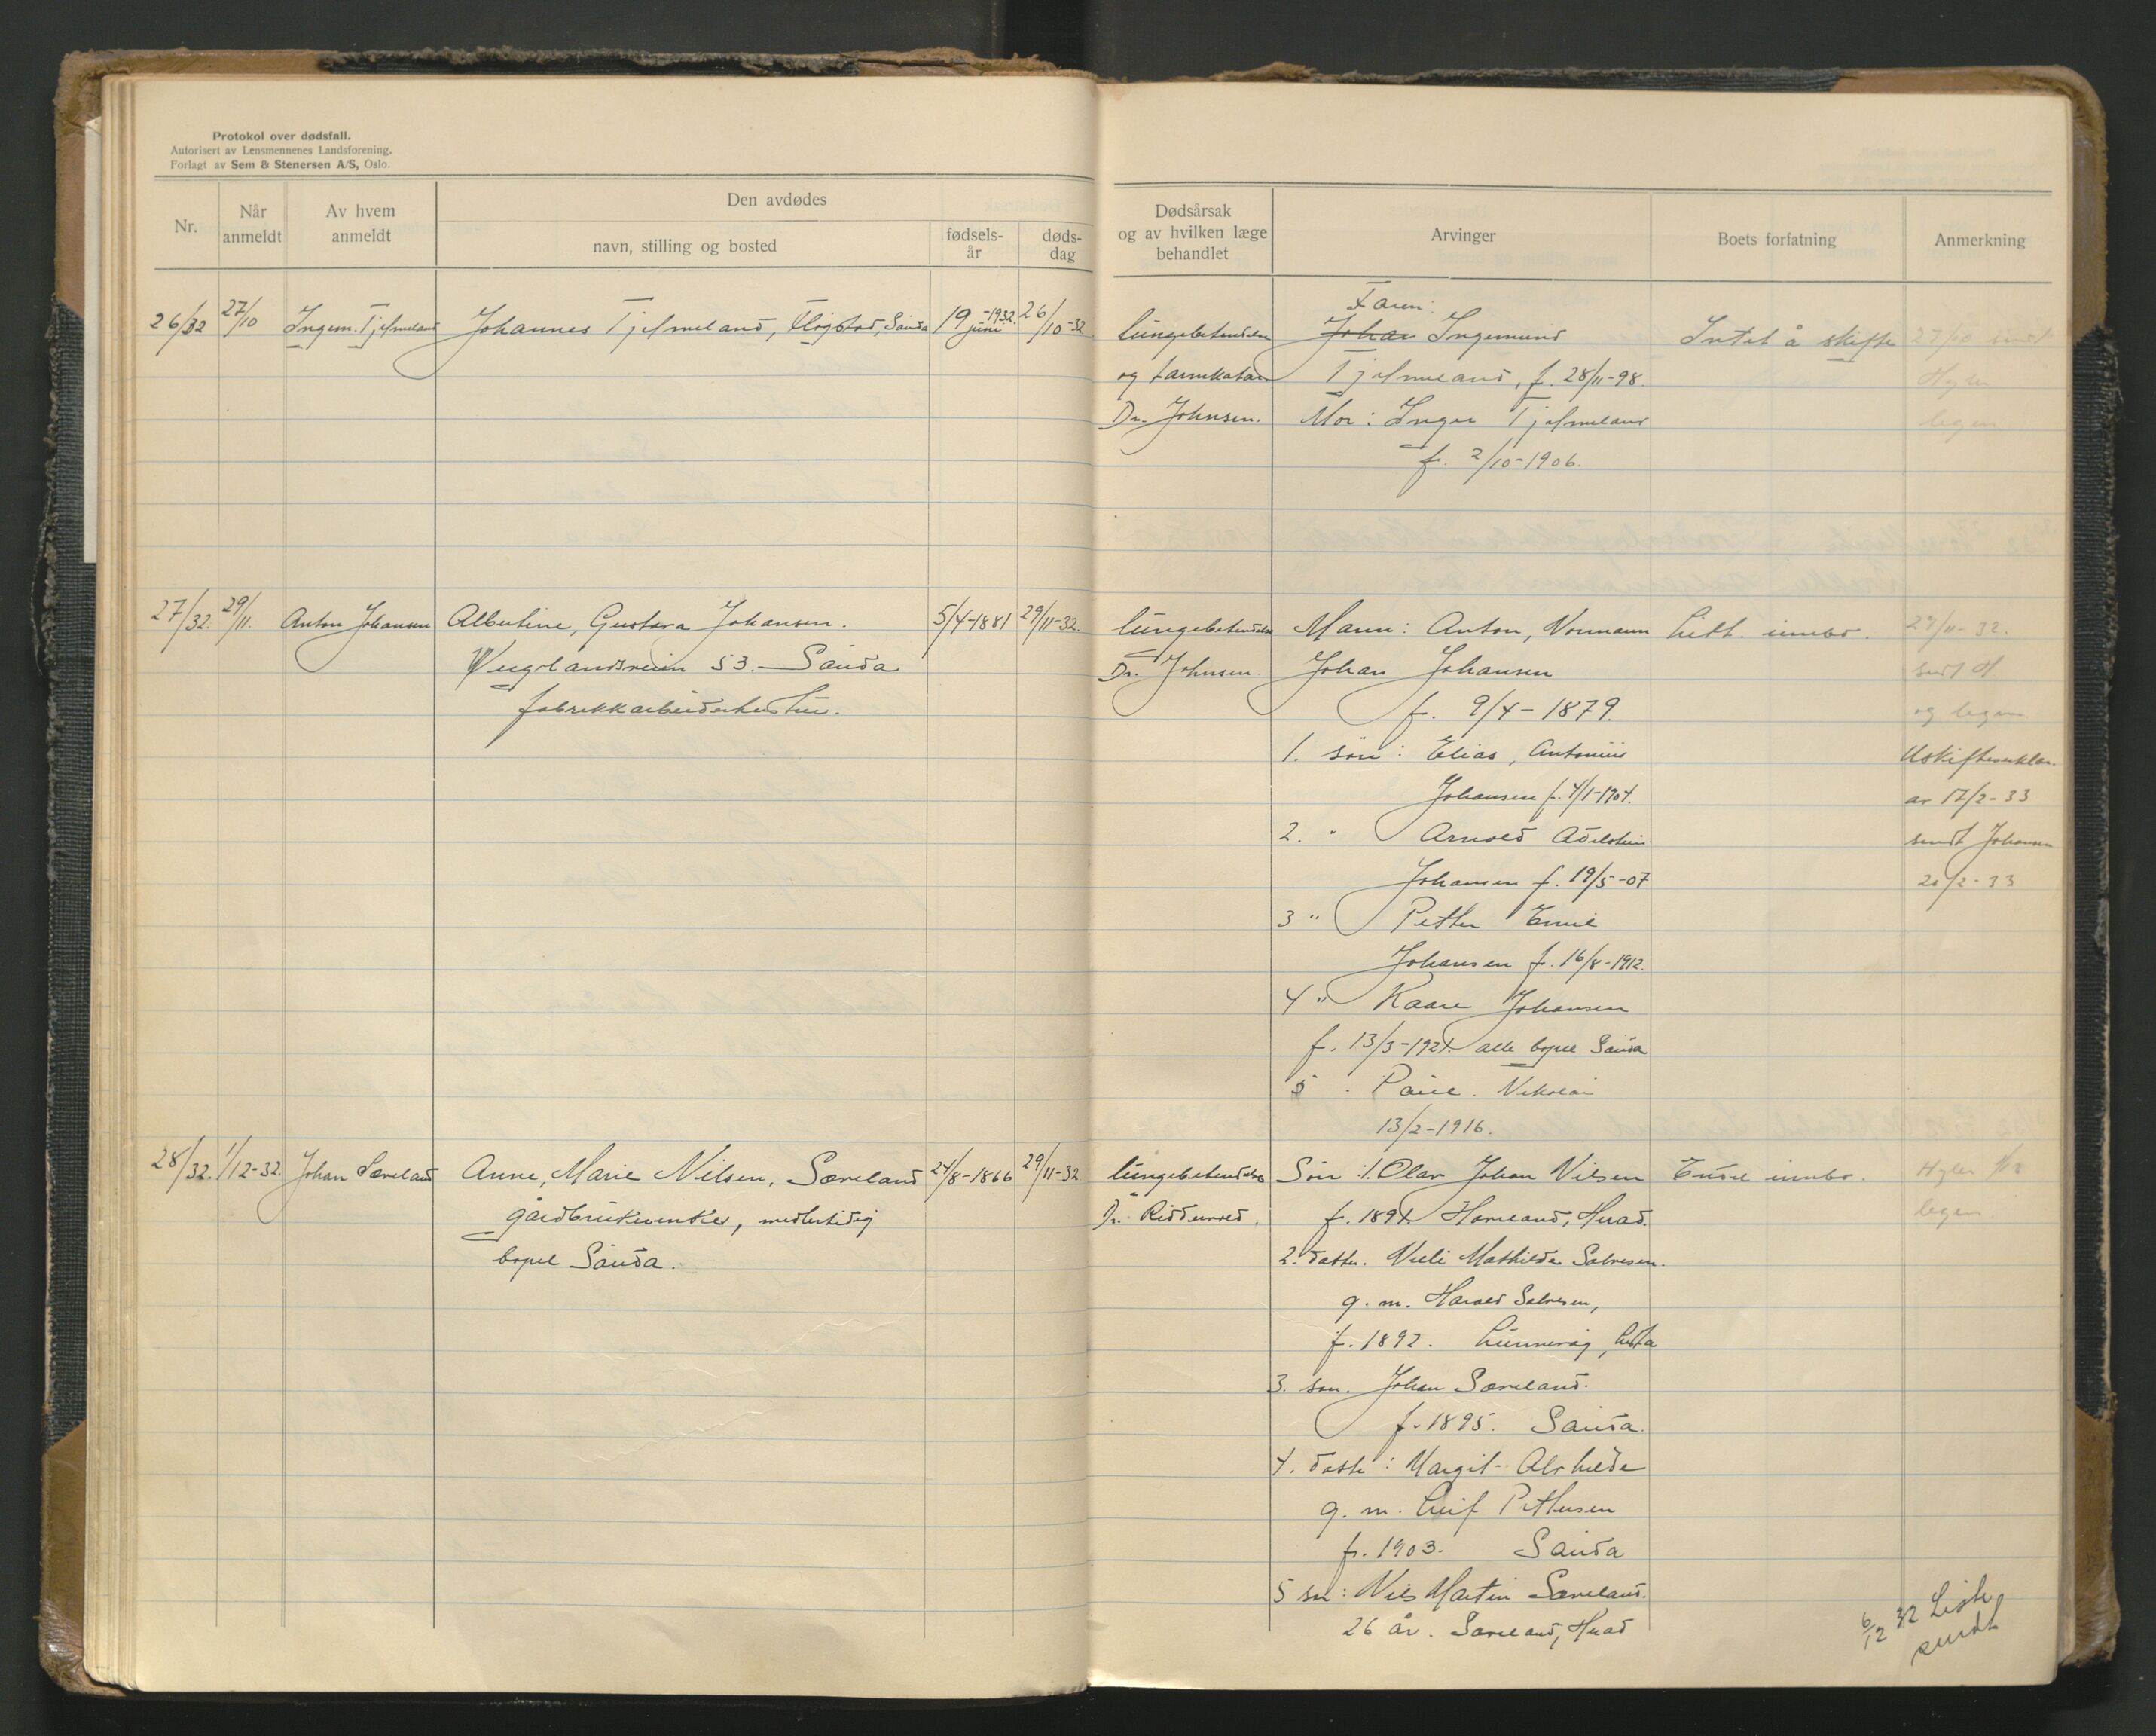 Protokol over dødsfall.
Autorisert av Lensmennenes Landsforening.
Forlagt av Sem & Stenersen A/S, Oslo.
Nr.
Når anmeldt
Av hvem anmeldt
Den avdødes
navn, stilling og bosted
fødsels-år
døds-dag
Dødsårsak
og av hvilken læge
behandlet
Arvinger
Boets forfatning
Anmerkning
26/32 27/10 Ingem. Tjelmeland Johannes Tjelmeland, Sauda 19 juni -1932. 26/10-32
lungebetendelse
og tarmkatarr
Dr. Johnsen.
Faren:
Johan Ingemund
Tjelmeland, f. 28/11-98.
Mor: Inger Tjelmeland
f. 2/10-1906.
Intet å skifte
27/10 sendt
Hyler
legen
27/32. 29/11. Anton Johansen Albertine, Gustava Johansen. 5/4-1881 29/11-32.
53. Sauda
fabrikkarbeiderhustru.
lungebetendelse
Dr. Johnsen.
Mann: Anton, Normann
Johan Johansen
f. 9/4-1879.
1. søn: Elias, Antonius
Johansen f. 4/1-1904.
2. " Arnold Adelstein
Johansen f. 19/5-07
3 " Petter Emil
Johansen f. 16/8-1912.
4 " Kaare Johansen
f. 13/3-1921. alle bopel Sauda
5 . Paul. Nikolai
13/2-1916.
Litt innbo.
29/11-32.
sendt
og legen
Uskifteerklær.
av 17/2-33
sendt Johansen
20/2-33
28/32. 1/12-32. Johan Sæveland Anne, Marie Nilsen, Sæveland 24/8-1866 29/11-32
gårdbrukerenke, midlertidig
bopel Sauda.
lungebetendelse
Dr. Riddervold.
Søn: 1. Olav Johan Nilsen
f. 1891. Haveland, Herad.
2. datter. Mathilde Salvesen.
g. m. Harald Salvesen,
f. 1892. Lista
3. søn. Johan Sæveland.
f. 1895. Sauda.
4. datter: Margit
g. m. Leif Pettersen
f. 1903. Sauda
5 søn: Nils Martin Sæveland.
26 år. Sæveland, Herad
Endel innbo.
Hyler
legen
6/12 32 Liste
sendt